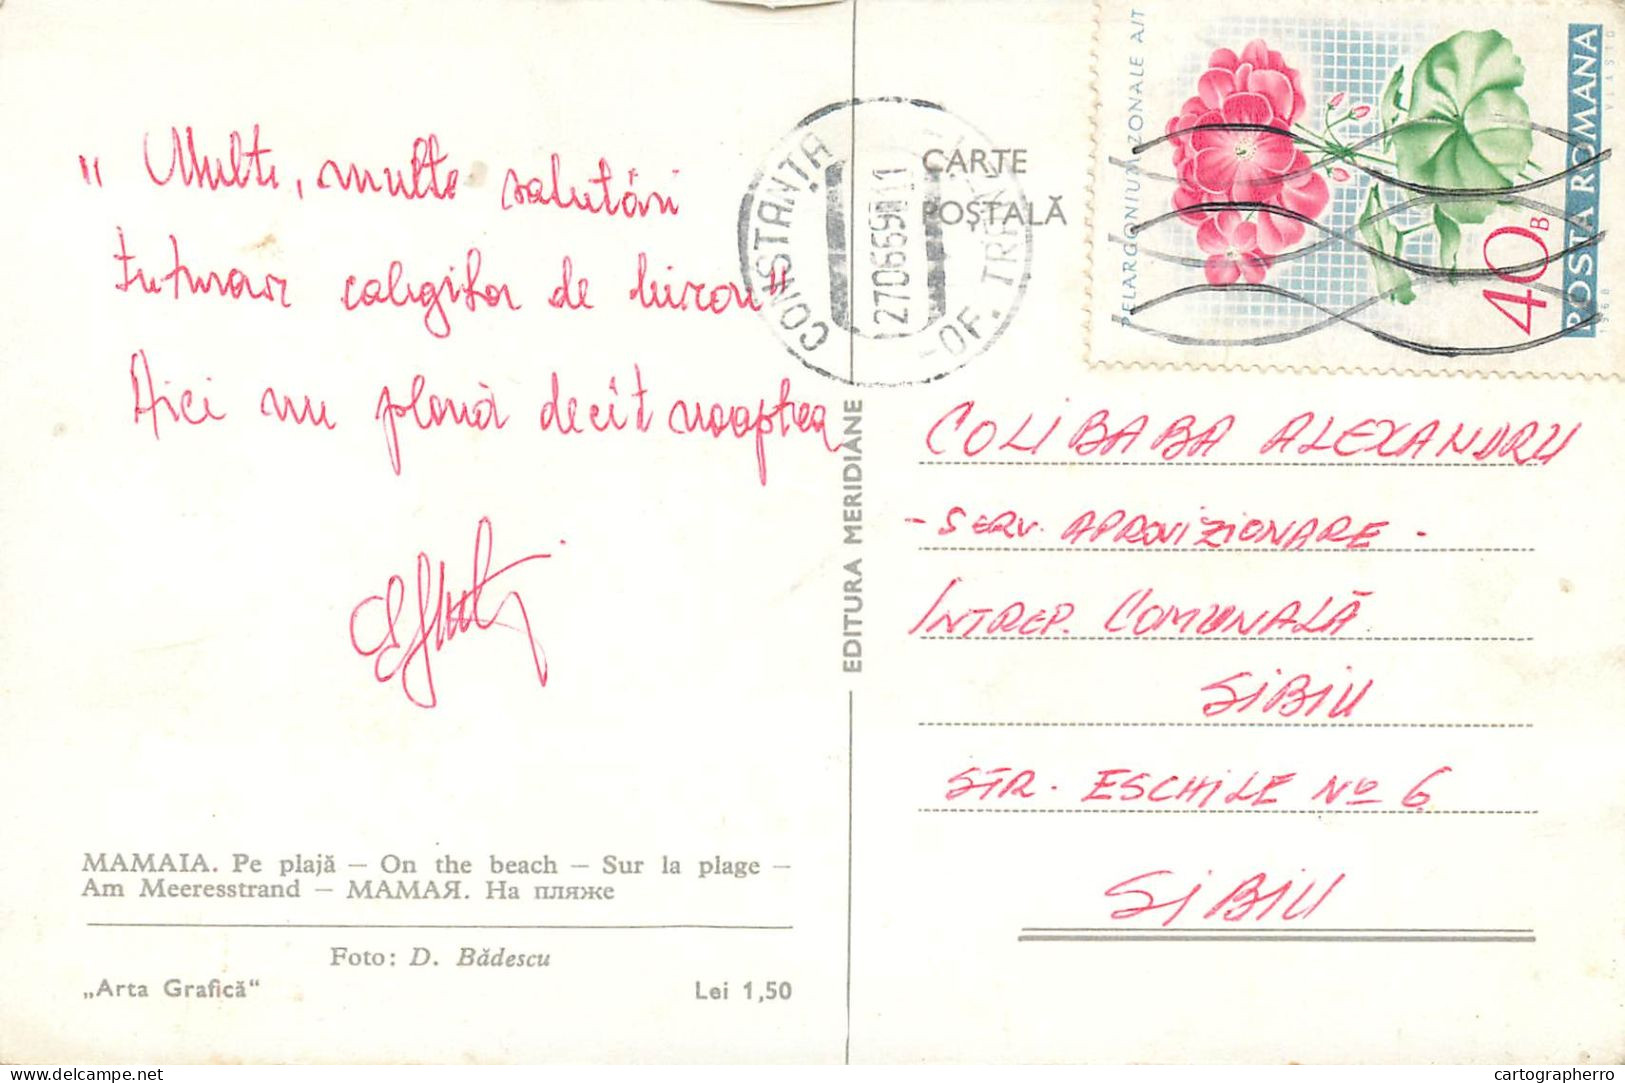 "Multe, multe salutări
tuturor colegilor de birou"
Aici nu plouă decît noaptea
MAMAIA. Pe plajă — On the beach — Sur la plage —
Am Meeresstrand — МАМАЯ. На пляже
Foto: D. Bădescu
„Arta Grafică"
Lei 1,50
EDITURA MERIDIANE
CONSTANȚA
270669
11
OF. TREN
CARTE
POȘTALĂ
PELARGONIUM ZONALE AIT
40 B
POSTA ROMANA
1968 VLASTO
COLIBABA ALEXANDRU
- SERV. APROVIZIONARE -
INTREP. COMUNALĂ
SIBIU
STR. ESCHILE No 6
SIBIU
cartographerro
delcampe.net